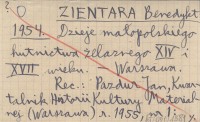 O ZIENTARA Benedykt
1954. Dzieje małopolskiego
hutnictwa żelaznego XIV i
XVII wieku. – Warszawa.
Rec.: Pazdur Jan, Kwar-
talnik Historii Kultury Material-
nej (Warszawa) r. 1955,